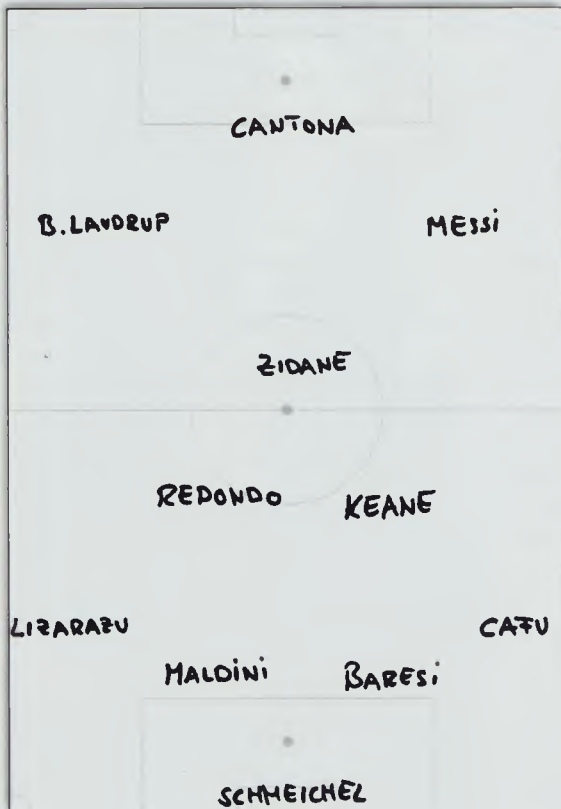 CANTONA
B. LAUDRUP MESSi
ZIDANE
REDONDO KEANE
LIZARAZU CAFU
MALDiNi BARESi
SCHMEICHEL